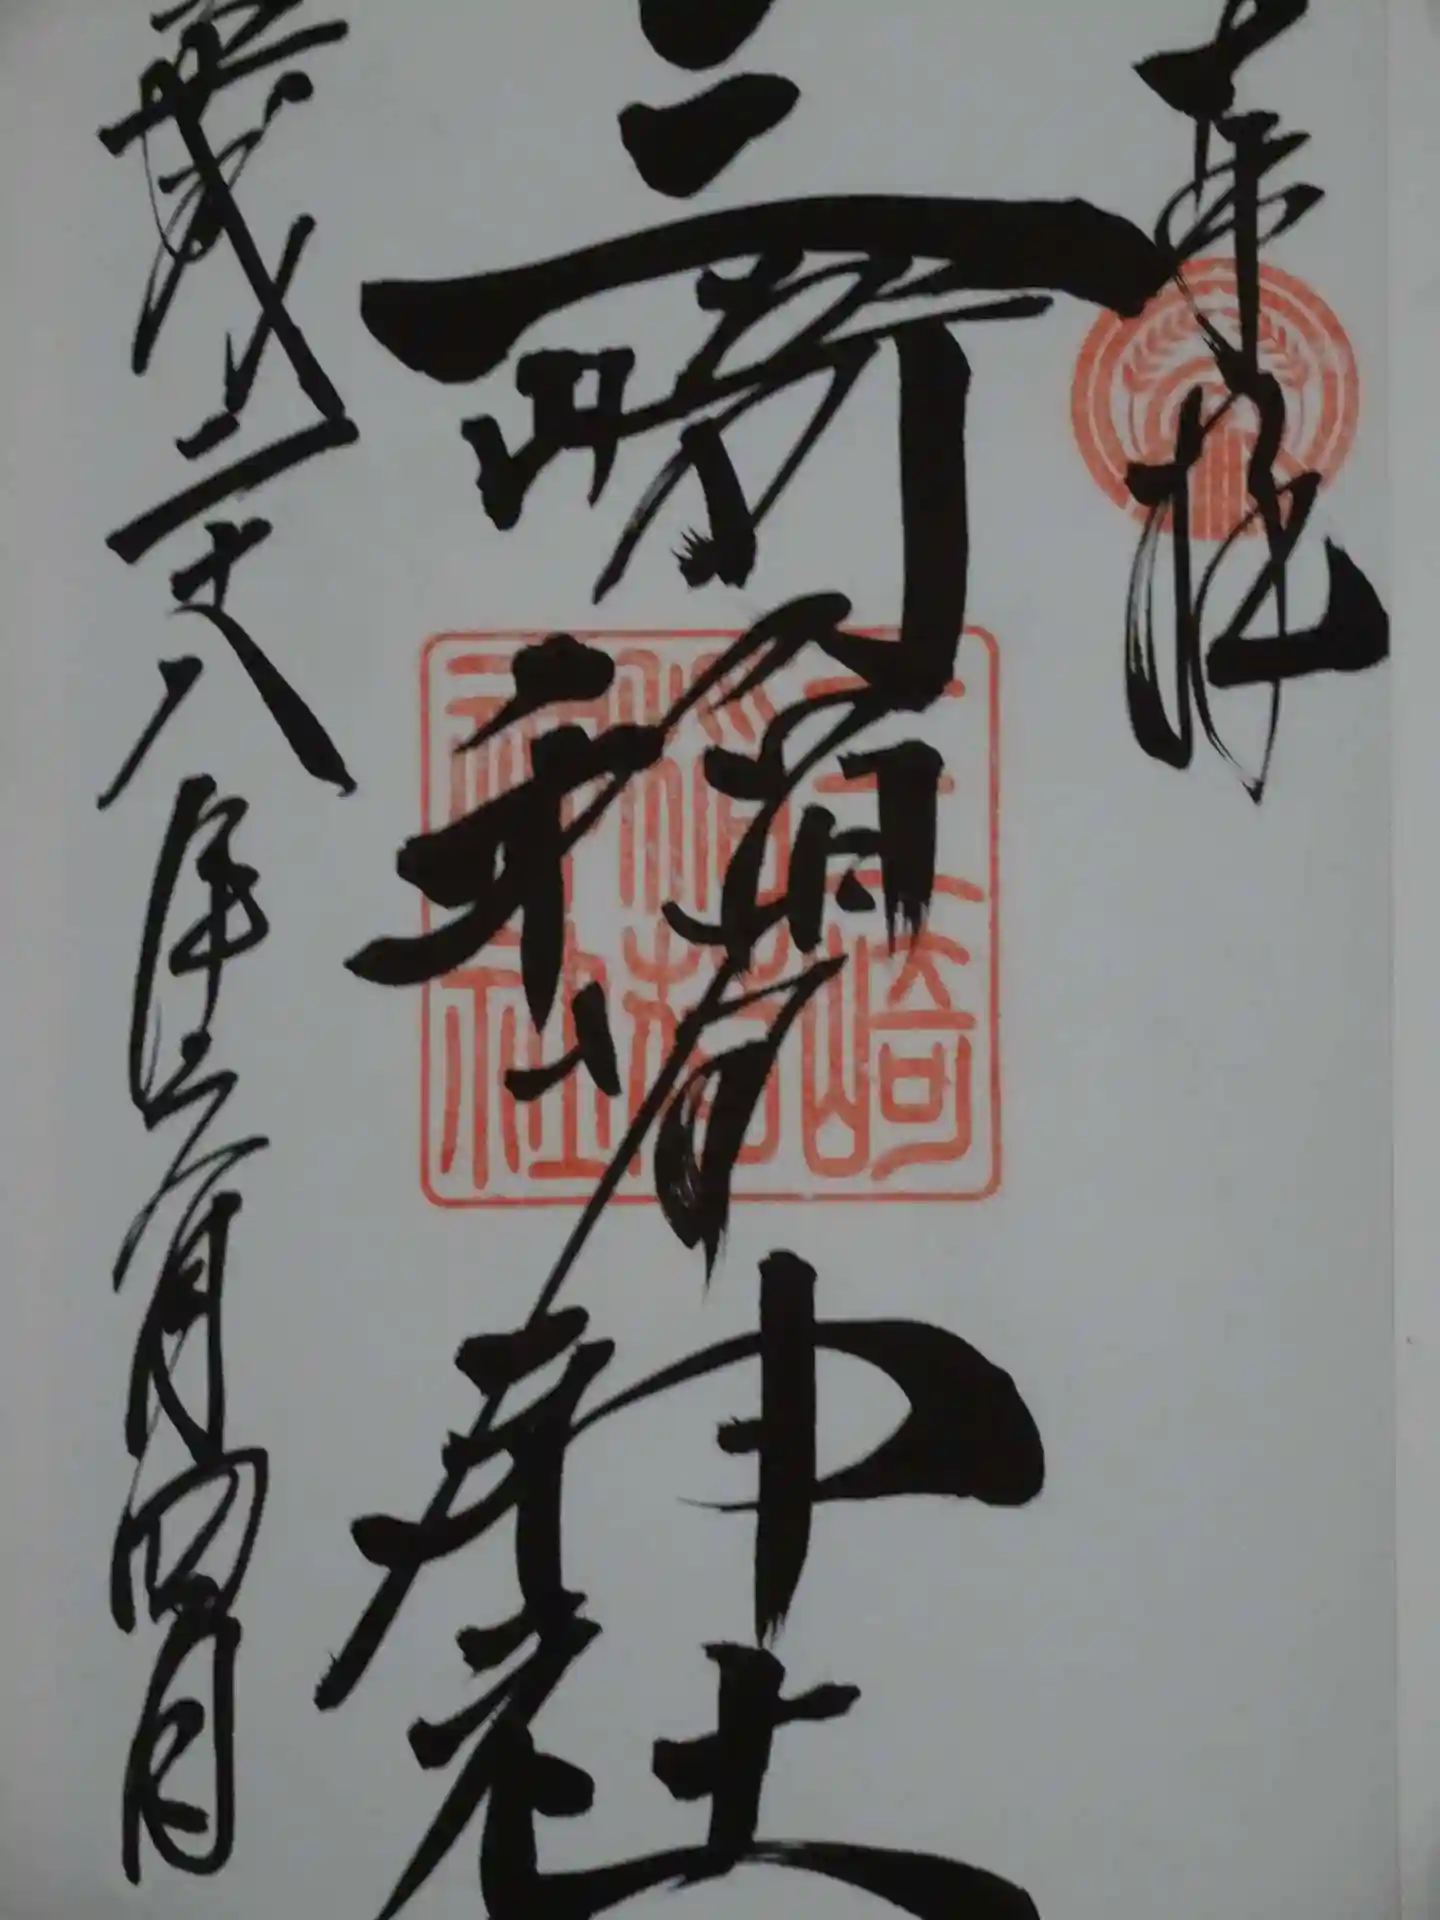 奉拝
三﨑稲荷神社
三崎稲荷神社
平成二十八年六月四日